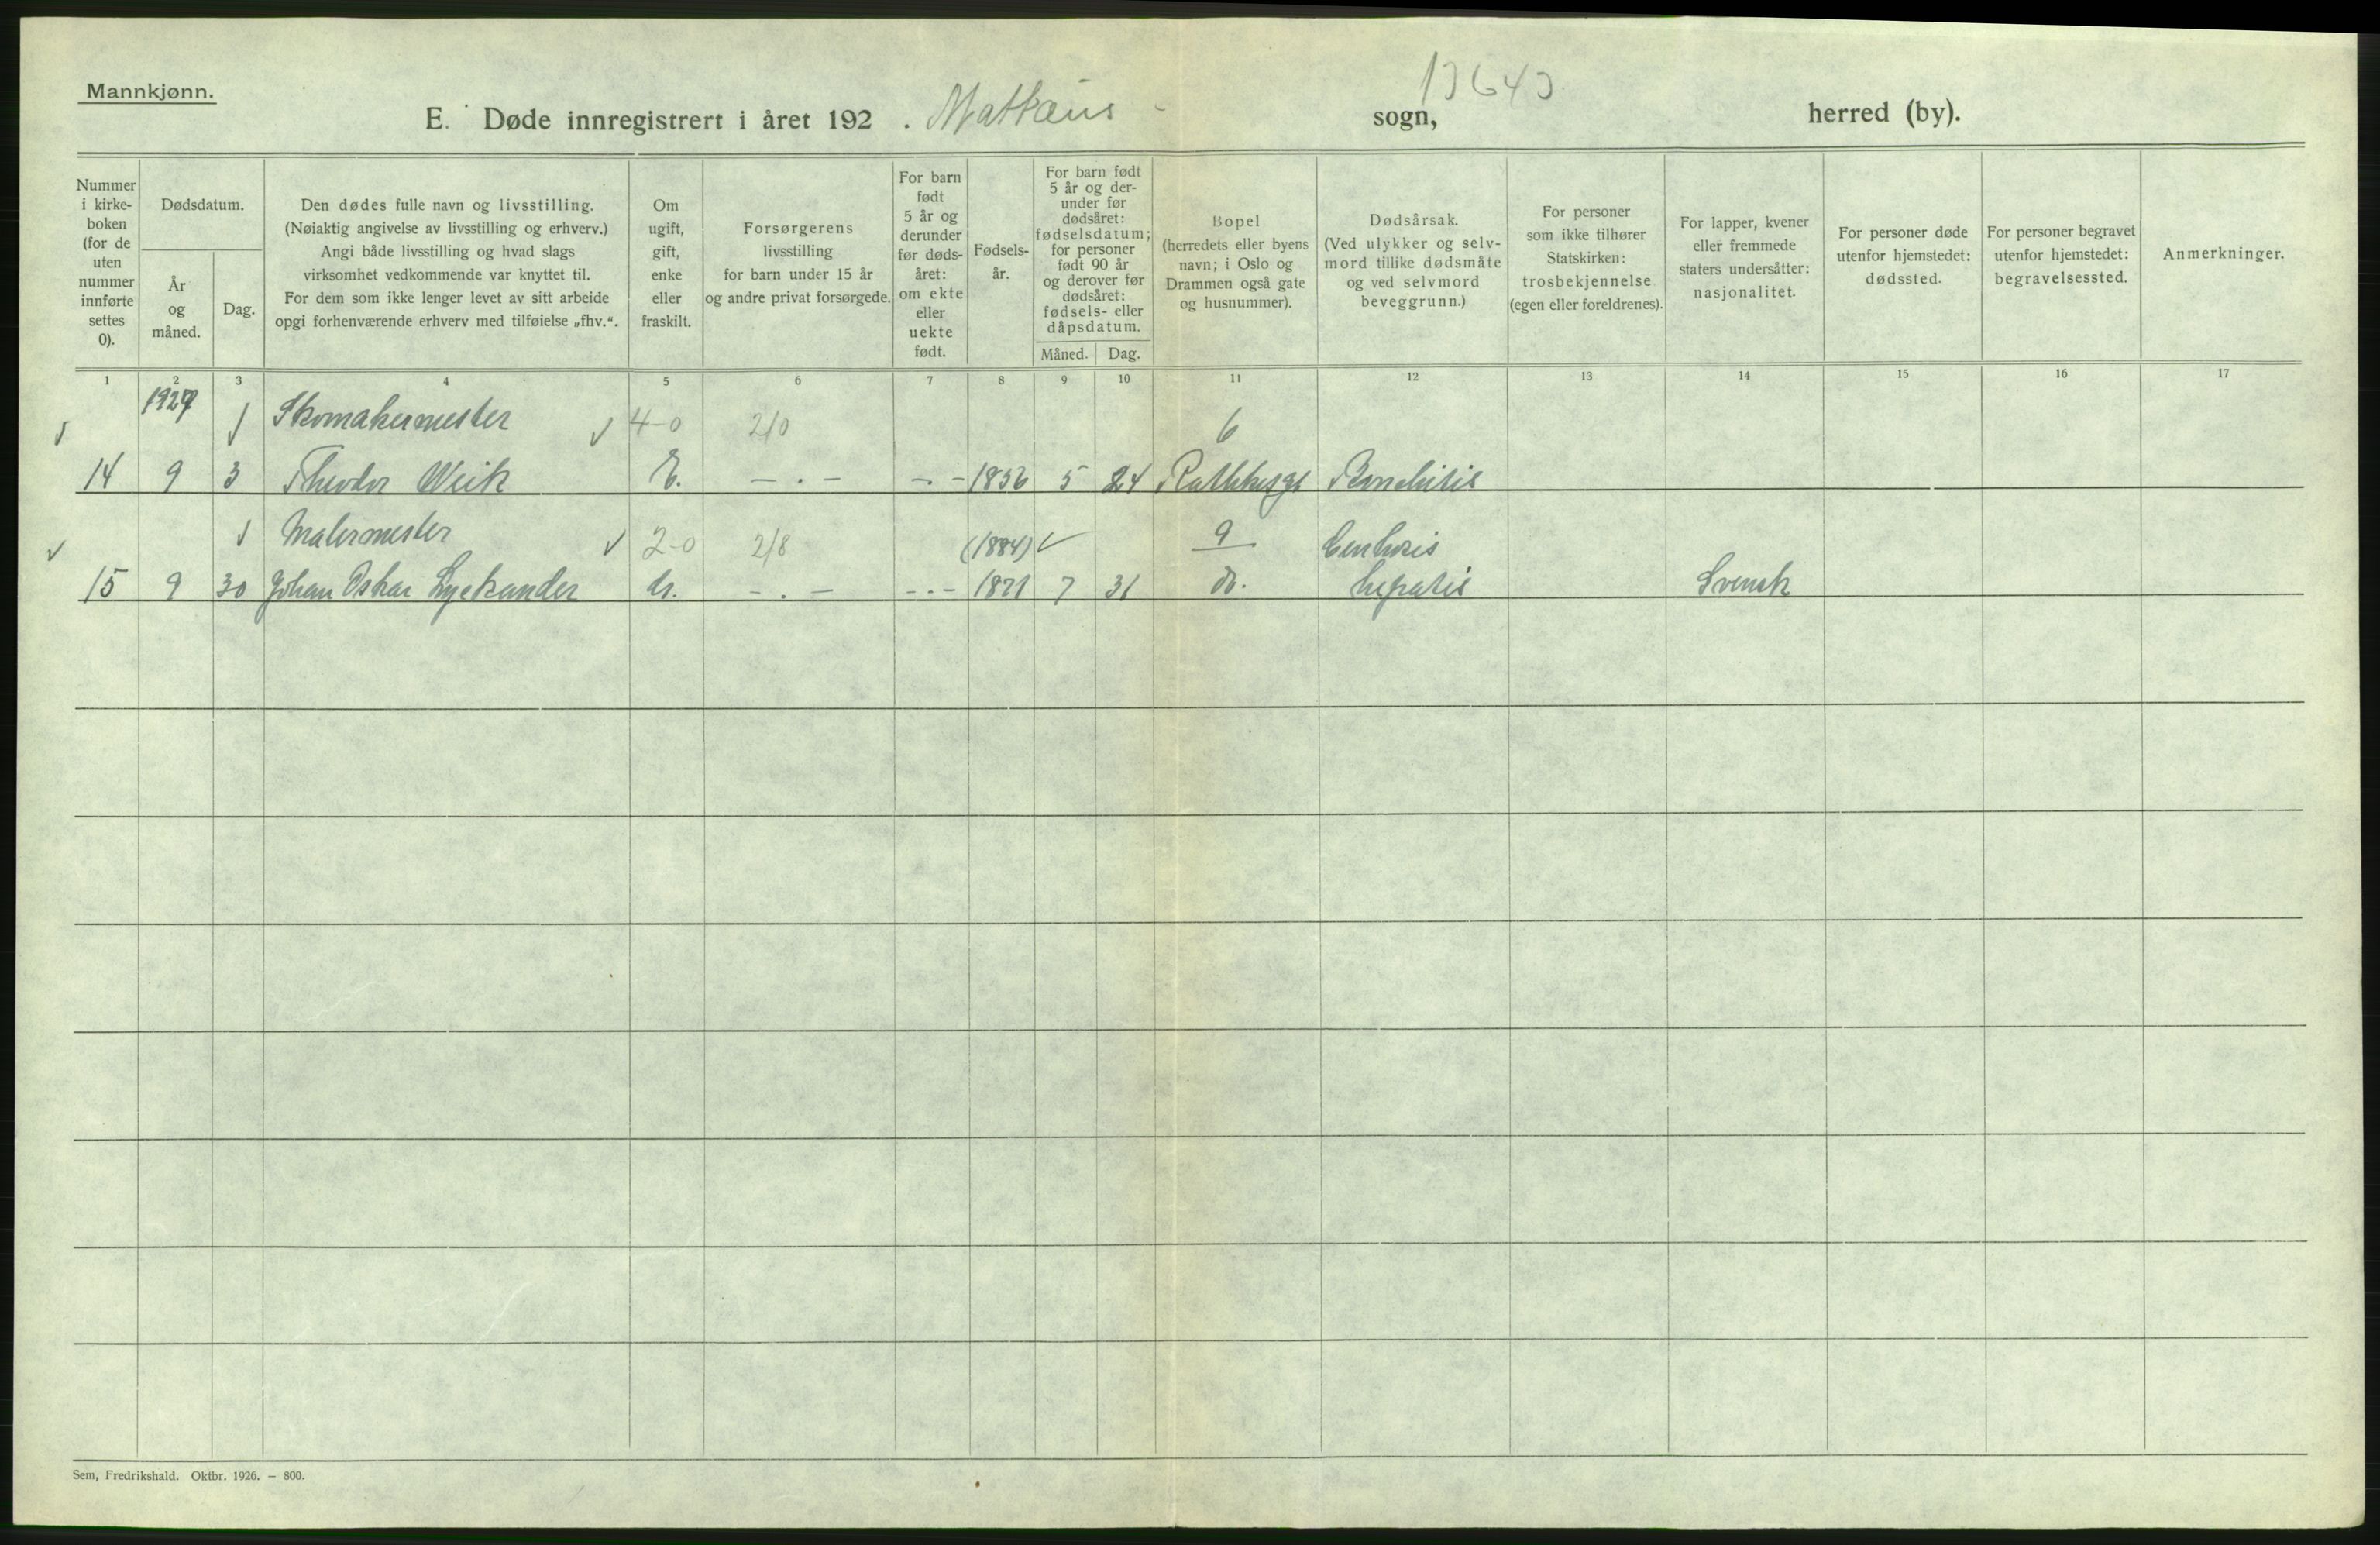 Mannkjønn.
E. Døde innregistrert i året 192 . Mattæus sogn, herred (by).
Nummer i kirke-boken (for de uten nummer innførte settes 0).
Dødsdatum.
År og måned.
Dag.
Den dødes fulle navn og livsstilling.
(Nøiaktig angivelse av livsstilling og erhverv.)
Angi både livsstilling og hvad slags
virksomhet vedkommende var knyttet til.
For dem som ikke lenger levet av sitt arbeide
opgi forhenværende erhverv med tilføielse „fhv.“.
Om ugift, gift, enke eller fraskilt.
Forsørgerens
livsstilling
for barn under 15 år
og andre privat forsørgede.
For barn født 5 år og derunder før døds-året: om ekte eller uekte født.
Fødsels-år.
For barn født 5 år og der-under før dødsåret: fødselsdatum; for personer født 90 år og derover før dødsåret: fødsels- eller dåpsdatum.
Måned. Dag.
Bopel
(herredets eller byens
navn; i Oslo og
Drammen også gate
og husnummer).
Dødsårsak.
(Ved ulykker og selv-
mord tillike dødsmåte
og ved selvmord
beveggrunn.)
For personer
som ikke tilhører
Statskirken:
trosbekjennelse
(egen eller foreldrenes).
For lapper, kvener
eller fremmede
staters undersåtter:
nasjonalitet.
For personer døde
utenfor hjemstedet:
dødssted.
For personer begravet
utenfor hjemstedet:
begravelsessted.
Anmerkninger.
1 2 3 4 5 6 7 8 9 10 11 12 13 14 15 16 17
1927 Skomakermester 4-0 2/0 6
14 9 3 Theodor Weik E. — . — — . — 1856 5 24 Rathkesgt Bronchitis
Malermester 2-0 2/8 (1884) 9
15 9 30 Johan Oskar Lyckander — . — — . — 1871 7 31 do. hepatis Svensk
Sem, Fredrikshald. Oktbr. 1926. — 800.